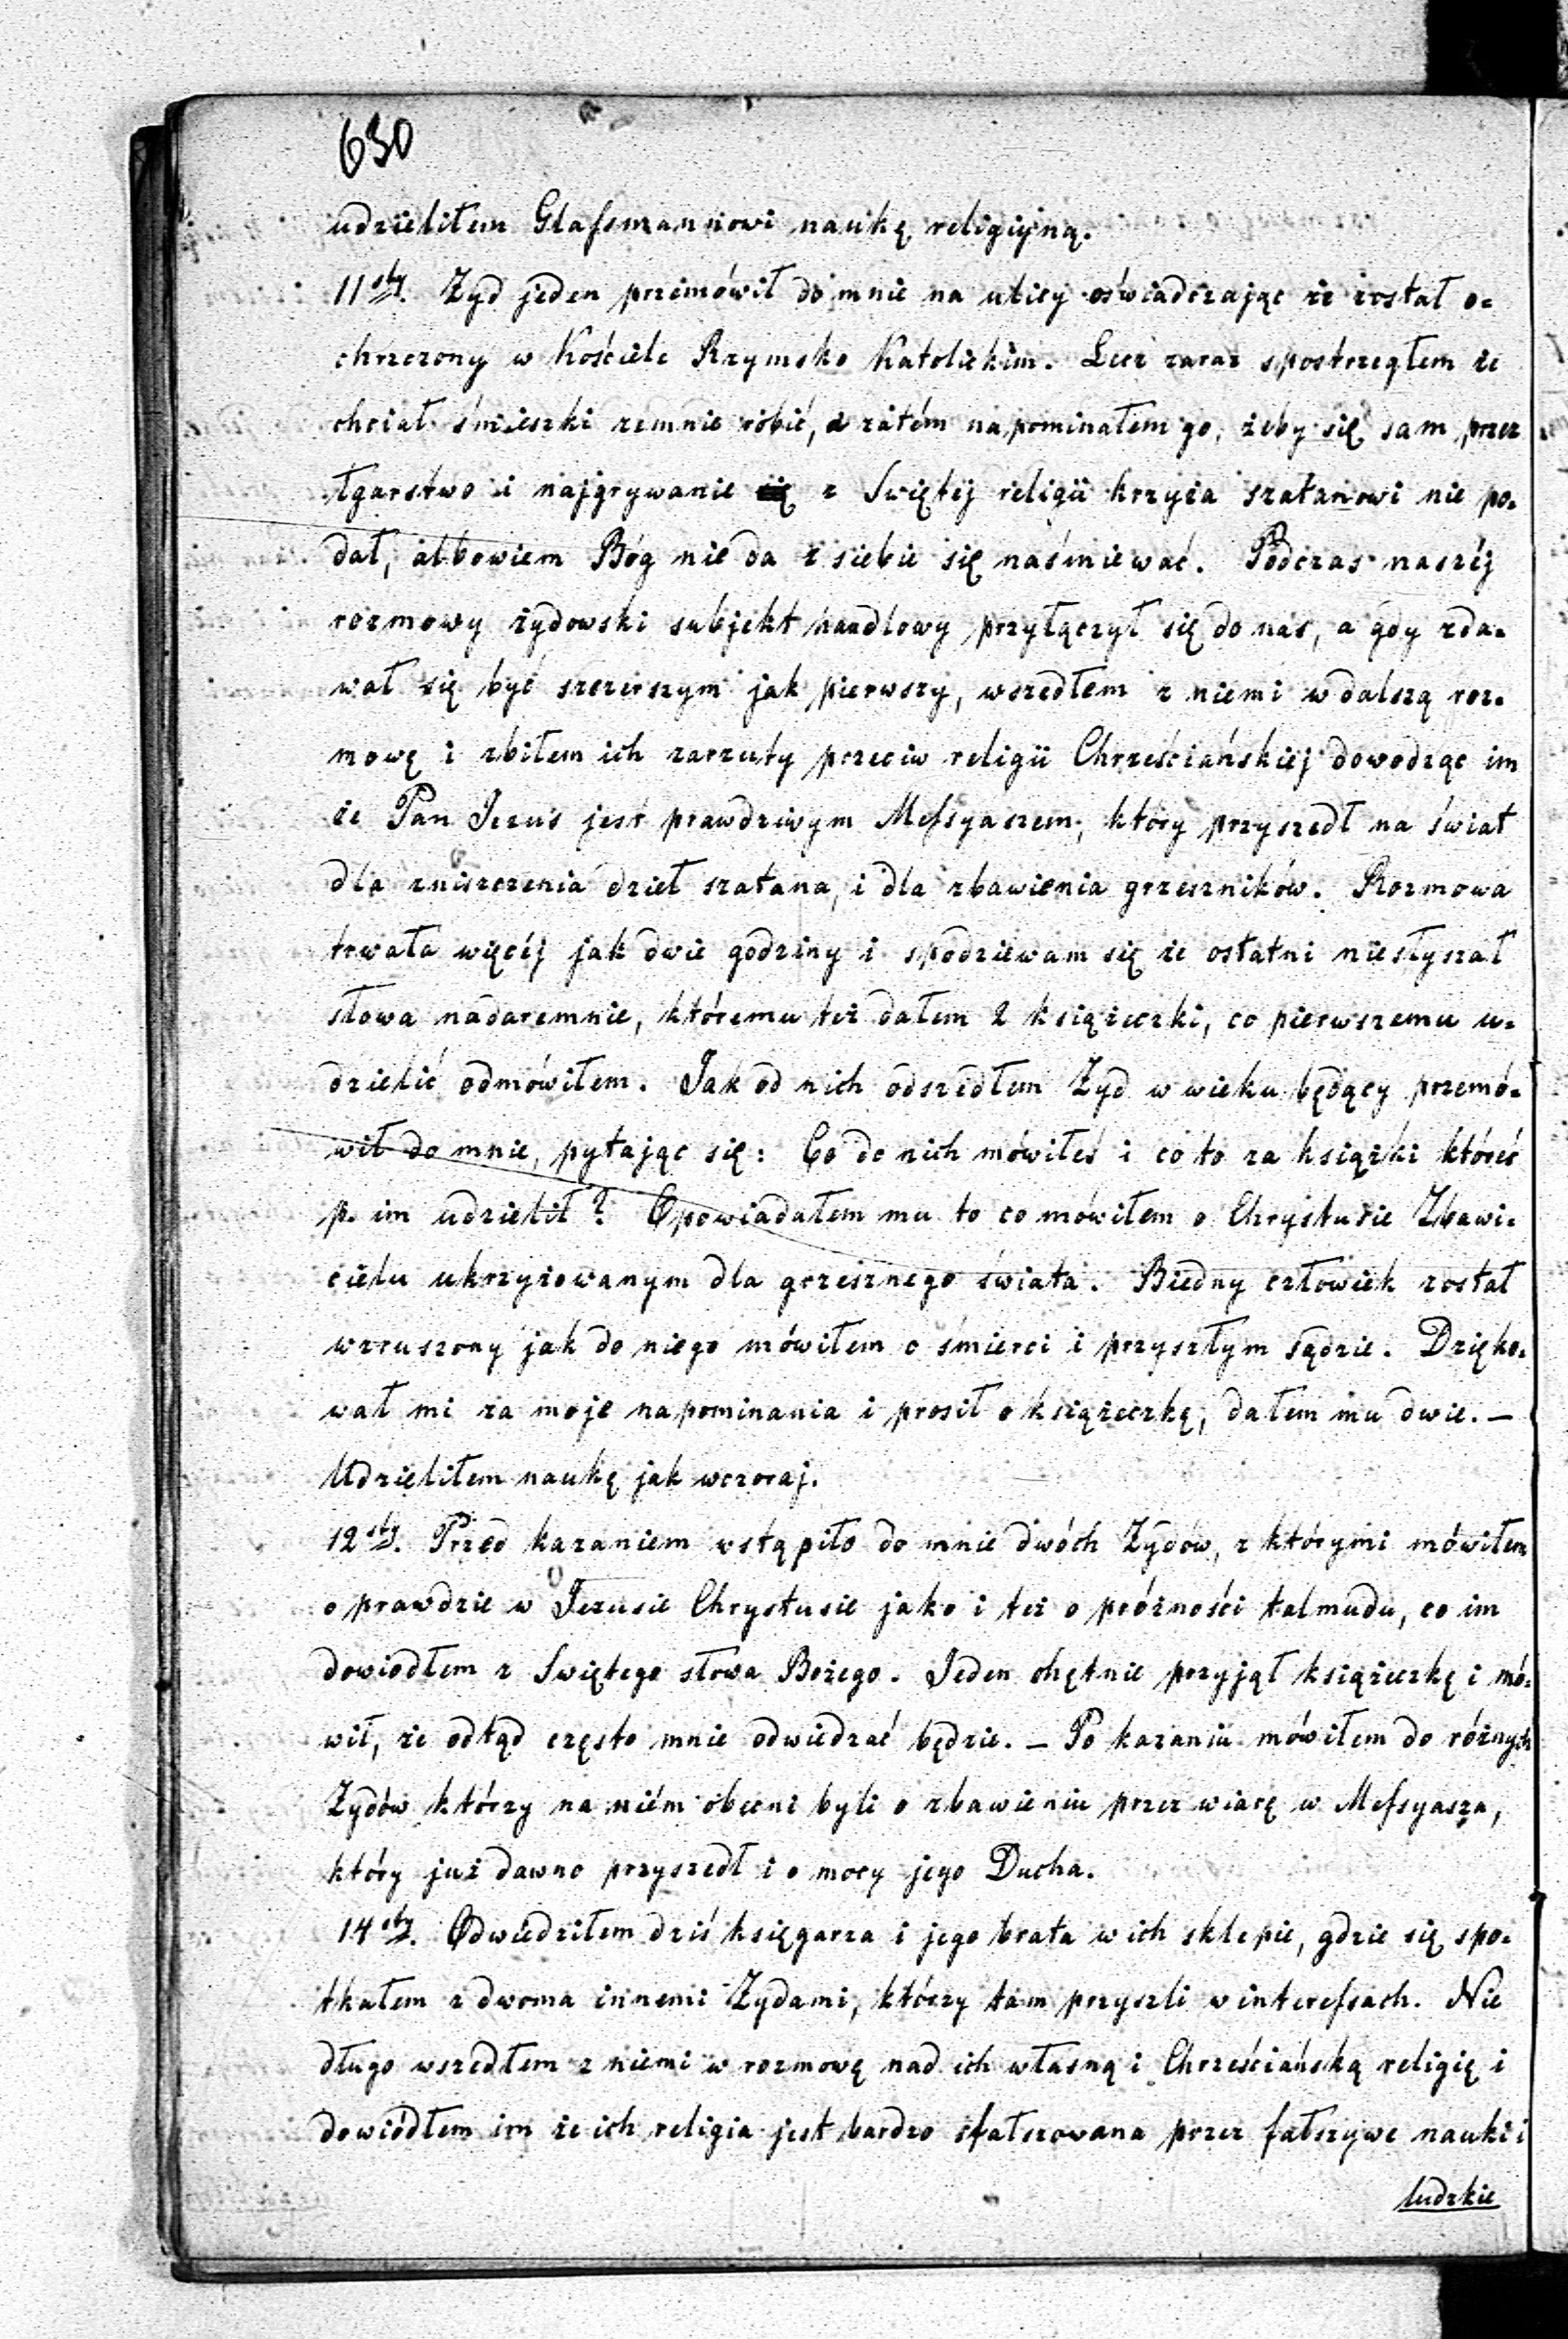 630
udzieliłem Glaſsmannowi naukę religijną.
11sty. Żyd jeden przemówił do mnie na ulicy oświadczając że został o-
chrzczony w Kościele Rzymsko Katolickim. Lecz zaraz spostrzegłem że
chciał śmieszki zemnie robić, a zatém napominałem go, żeby się sam przez
łgarstwo i najgrywanie z Swiętej religii krzyża szatanowi nie po-
dał, albowiem Bóg nie da z siebie się naśmiewać. Podczas naszéj
rozmowy żydowski subjekt handlowy przyłączył się do nas, a gdy zda-
wał się być szczerszym jak pierwszy, wszedłem z niemi w dalszą roz-
mowę i zbiłem ich zarzuty przeciw religii Chrześciańskiéj dowodząc im
że Pan Jezus jest prawdziwym Meſsyaszem, który przyszedł na świat
dla zniszczenia dzieł szatana, i dla zbawienia grzeszników. Rozmowa
trwała więcéj jak dwie godziny i spodziewam się że ostatni niesłyszał
słowa nadaremnie, któremu też dałem 2 książeczki, co pierwszemu u-
dzielić odmówiłem. Jak od nich odszedłem Żyd w wieku będący przemó-
wił do mnie, pytając się: Co do nich mówiłeś i co to za książki któreś
p. im udzielił? Opowiadałem mu to co mówiłem o Chrystusie Zbawi-
cielu ukrzyżowanym dla grzesznego świata. Biedny człowiek został
wzruszony jak do niego mówiłem o śmierci i przyszłym sądzie. Dzięko-
wał mi za moje napominania i prosił o książeczkę, dałem mu dwie. —
Udzieliłem naukę jak wczoraj.
12sty. Przed kazaniem wstąpiło do mnie dwóch Żydów, z którymi mówiłem
o prawdzie w Jezusie Chrystusie jako i też o próżności talmudu, co im
dowiodłem z Swiętego słowa Bożego. Jeden chętnie przyjął książeczkę i mó-
wił, że odtąd często mnie odwiedzać będzie. — Po kazaniu mówiłem do różnych
Żydów którzy na niém obecni byli o zbawieniu przez wiarę w Meſsyasza,
który już dawno przyszedł i o mocy jego Ducha.
14sty. Odwiedziłem dziś księgarza i jego brata w ich sklepie, gdzie się spo-
tkałem z dwoma innemi Żydami, którzy tam przyszli w intereſsach. Nie
długo wszedłem z niemi w rozmowę nad ich własną i Chrześciańską religię i
dowiódłem im że ich religia jest bardzo sfałszowana przez fałszywe nauki i
ludzkie